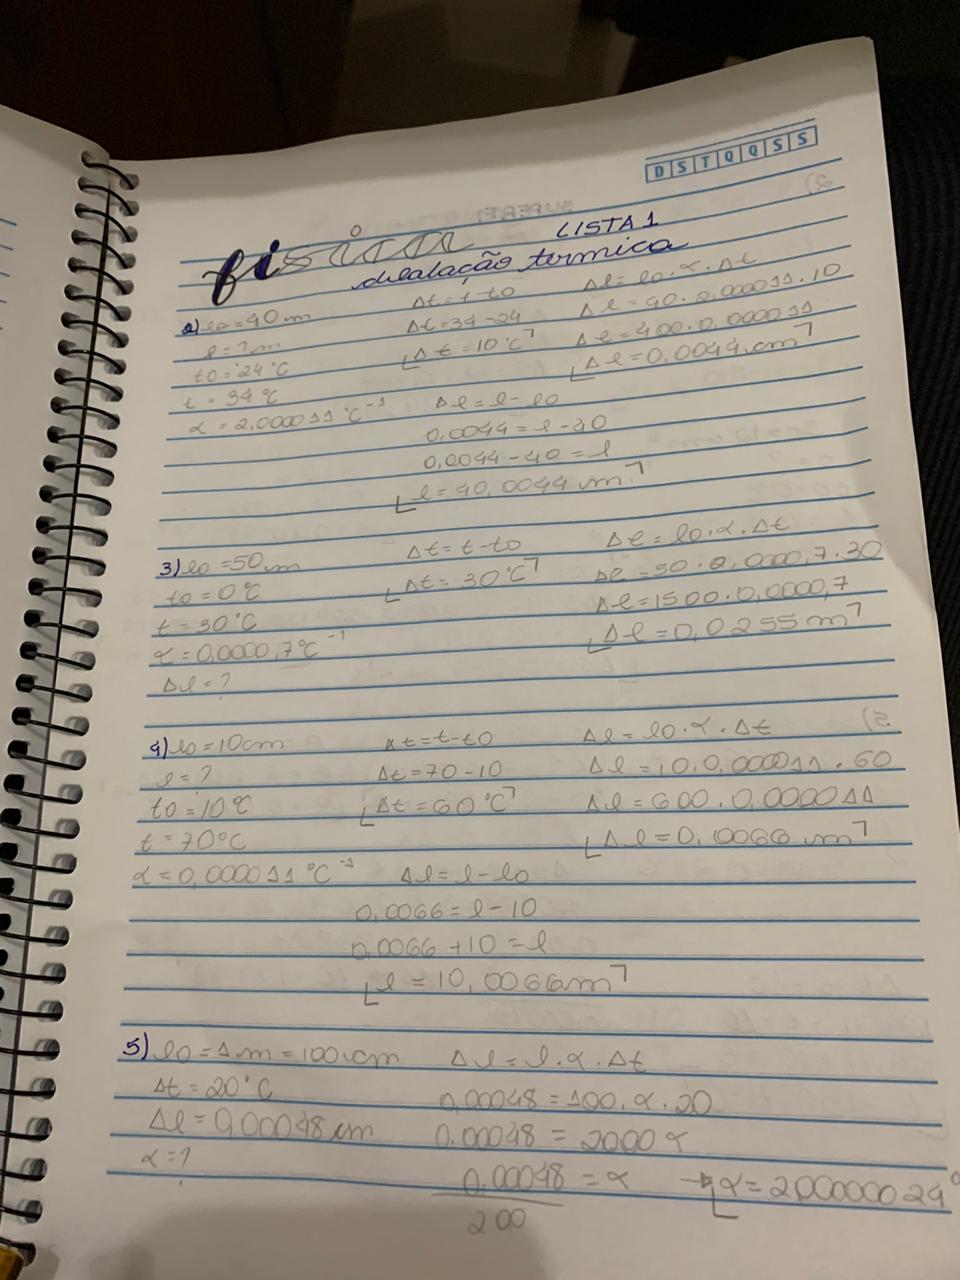 D S T Q Q S S
física LISTA 1
dealação termica
2) l0 = 40 m
l = ? m
t0 = 24 °C
t = 34 °C
α = 0,000011 °C⁻¹
Δt = t - t0
Δt = 34 - 24
Δt = 10 °C
Δl = l0 . α . Δt
Δl = 40 . 0,000011 . 10
Δl = 400 . 0,000011
Δl = 0,0044 cm
Δl = l - l0
0,0044 = l - 40
0,0044 - 40 = l
l = 40,0044 m
3) l0 = 50 m
t0 = 0°C
t = 30°C
α = 0,000017°C⁻¹
Δl = ?
Δt = t - t0
Δt = 30°C
Δl = l0 . α . Δt
Δl = 50 . 0,000017 . 30
Δl = 1500 . 0,000017
Δl = 0,0255 m
4) l0 = 10 cm
l = ?
t0 = 10°C
t = 70°C
α = 0,000011 °C⁻¹
Δt = t - t0
Δt = 70 - 10
Δt = 60 °C
Δl = l0 . α . Δt
Δl = 10 . 0,000011 . 60
Δl = 600 . 0,000011
Δl = 0,0066 cm
Δl = l - l0
0,0066 = l - 10
0,0066 + 10 = l
l = 10,0066 cm
5) l0 = 1 m = 100 cm
Δt = 20°C
Δl = 0,00048 cm
α = ?
Δl = l . α . Δt
0,00048 = 100 . α . 20
0,00048 = 2000 α
0,00048 = α
200
α = 0,00000024°